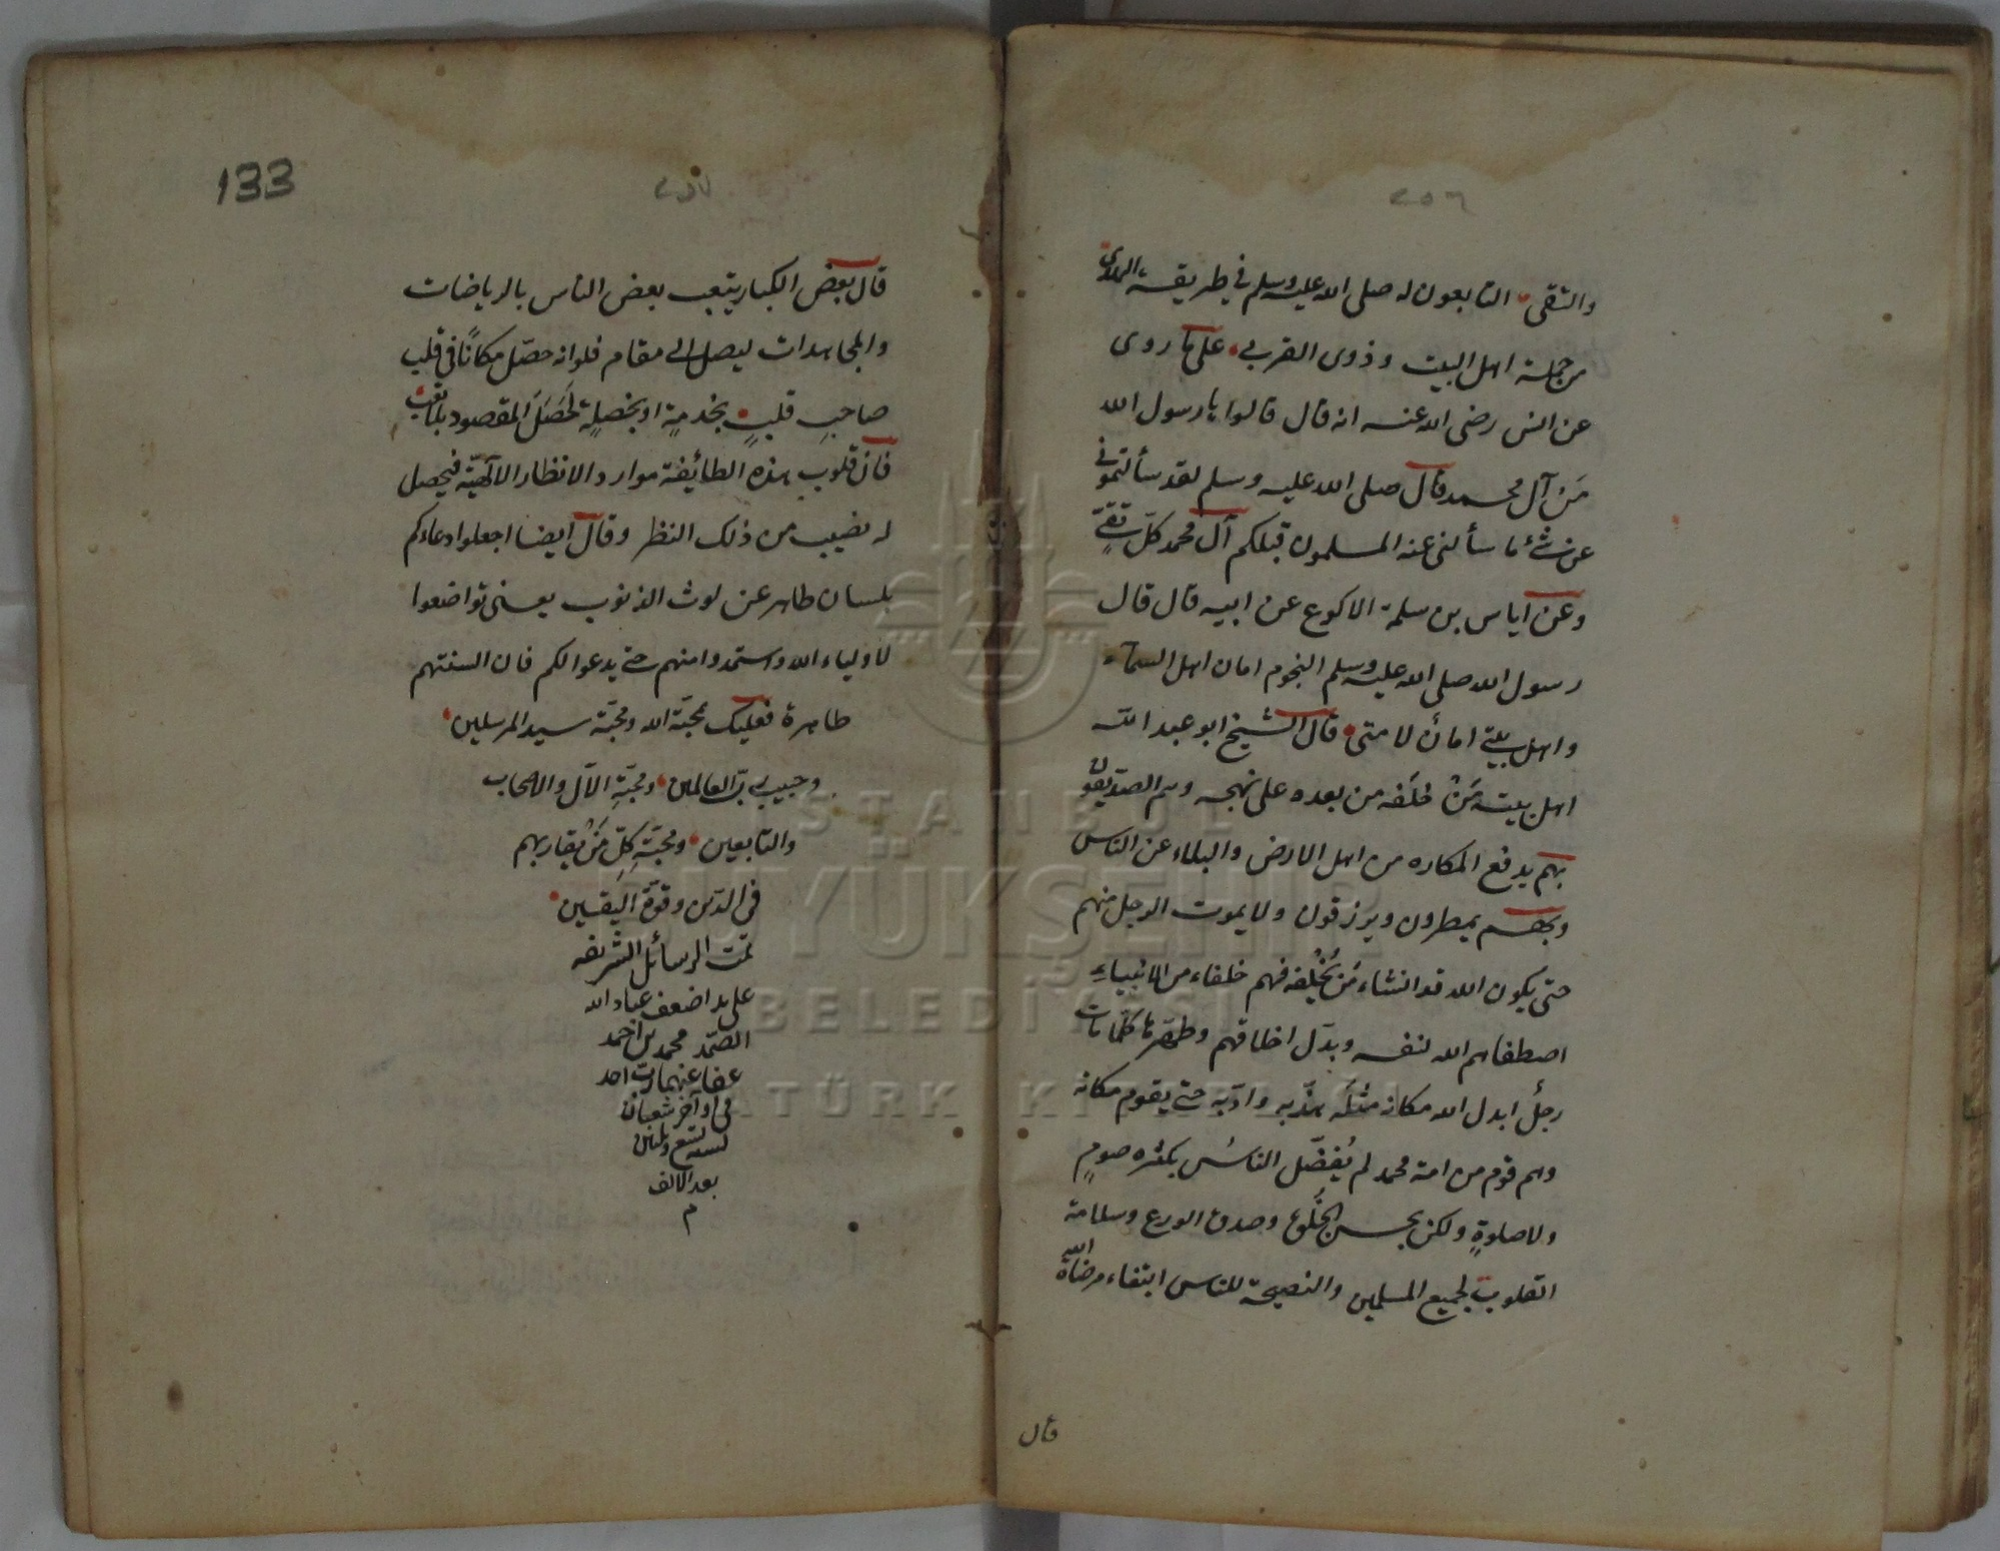 ٢٥٦
والتقى التابعون له صلى الله عليه وسلم في طريقة الهدى
من جملة اهل البيت وذوى القربى على ما روى
عن انس رضى الله عنه انه قال قالوا يا رسول الله
مَنْ آل محمد قال صلى الله عليه وسلم لقد سألتمونى
عن شئ ما سألنى عنه المسلمون قبلكم آل محمد كلّ تقىٍّ
وعن اياس بن سلمة الاكوع عن ابيه قال قال
رسول الله صلى الله عليه وسلم النجوم امان اهل السماء
واهل بيتى امان لامتى قال الشيخ ابو عبد الله
اهل بيته مَنْ خلَفه من بعده على نهجه وهم الصدّيقون
بهم يدفع المكاره من اهل الارض والبلاء عن الناس
وبهم يمطرون ويرزقون ولا يموت الرجل منهم
حتى يكون الله قد انشاء مَن يُخْلِفه فهم خلفاء من الانبياء
اصطفاهم الله لنفسه وبدّل اخلاقهم وطهّرها كلّما مات
رجل ابدل الله مكانه مثلَه هذّبه وادّبه حتى يقوم مكانه
وهم قوم من امة محمد لم يُفضَّل الناسُ بكثرة صومٍ
ولا صلوةٍ ولكن بحسن الخُلُق وصدق الورع وسلامة
القلوب لجميع المسلمين والنصيحة للناس ابتغاء مرضاة الله
قال
133
٢٥٧
قال بعض الكبار يتعب بعض الناس بالرياضات
والمجاهدات ليصل الى مقام فلو انه حصّل مكانًا فى قلب
صاحبِ قلبٍ بخدمةٍ او بخصلةٍ لَحَصَلَ المقصود بلا تعب
فانّ قلوب هذه الطائفة موارد الانظار الالٓهيّة فيحصل
له نصيب من ذلك النظر وقال ايضا اجعلوا دعاءكم
بلسان طاهر عن لوث الذنوب يعنى تواضعوا
لاولياء الله واستمدوا منهم حتى يدعوا لكم فان السنتهم
طاهرة فعليك بمحبّة الله ومحبّة سيد المرسلين
وحبيب ربّ العالمين ومحبّةِ الآل والاصحاب
والتابعين ومحبّةِ كلِّ مَنْ يقاربهم
فى الدّين وقوّة اليقين
تمت الرسائل الشريفه
على يد اضعف عباد الله
الصّمد محمد بن احمد
عفا عنهما احد
فى اواخر شعبان
لسنه تسع وثلثين
بعد الالف
م
ISTANBUL
BÜYÜKŞEHİR
BELEDİYESİ